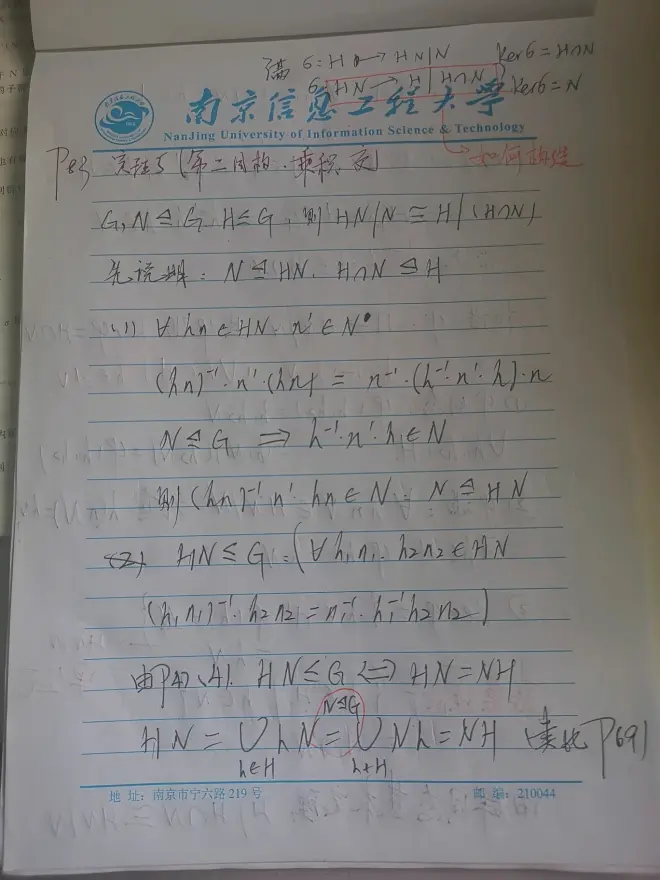 满 σ: H → HN/N Ker σ = H∩N
σ: HN → H/H∩N Ker σ = N
南京信息工程大学
NanJing University of Information Science & Technology
如何构造
P83 定理5 (第二同构·乘积 交)
G, N ⊴ G, H ≤ G, 则 HN/N ≅ H/(H∩N)
先说明: N ⊴ HN. H∩N ⊴ H
(1) ∀ hn ∈ HN. n' ∈ N
(hn)⁻¹·n'·(hn) = n⁻¹·(h⁻¹·n'·h)·n
N ⊴ G ⇒ h⁻¹·n'·h ∈ N
则 (hn)⁻¹·n'·hn ∈ N. N ⊴ HN
(2) HN ≤ G: (∀ h₁n₁. h₂n₂ ∈ HN
(h₁n₁)⁻¹·h₂n₂ = n₁⁻¹·h₁⁻¹h₂n₂)
由P47、41. HN ≤ G ⇔ HN = NH
N⊴G
HN = ∪ hN = ∪ Nh = NH P69)
h∈H h∈H
地 址: 南京市宁六路 219 号 邮 编: 210044